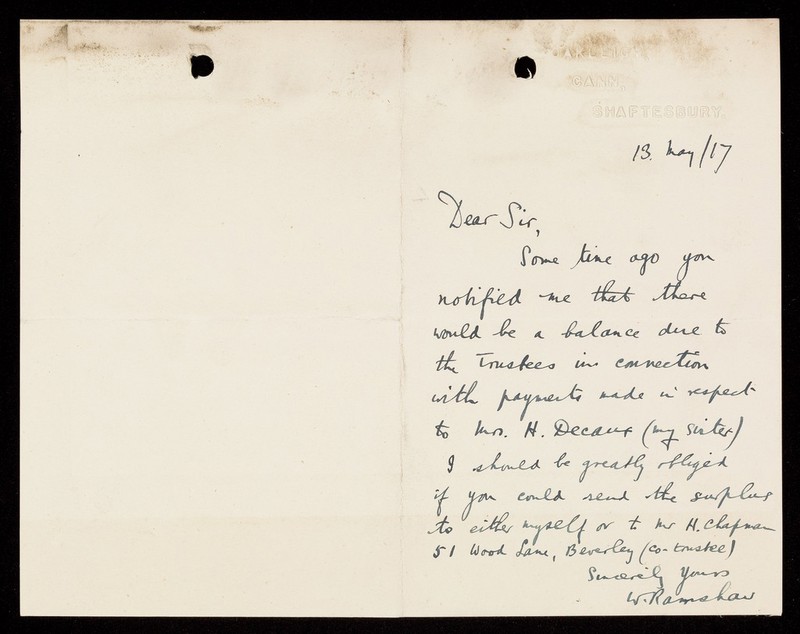 CANN,
SHAFTESBURY.
13. May/17
Dear Sir,
Some time ago you
notified me that there
would be a balance due to
the Trustees in connection
with payments made in respect
to Mrs. H. Decaux (my sister)
I should be greatly obliged
if you could send the surplus
to either myself or to Mr H. Chapman
51 Wood Lane, Beverley (co-trustee)
Sincerely Yours
W. Ramshaw